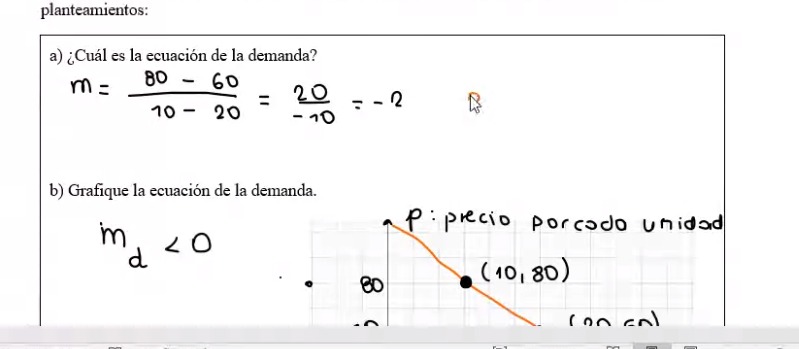 planteamientos:
a) ¿Cuál es la ecuación de la demanda?
m = 80 - 60 / 10 - 20 = 20 / -10 = -2
b) Grafique la ecuación de la demanda.
m d < 0
P : precio por cada unidad
80
(10, 80)
(20, 60)